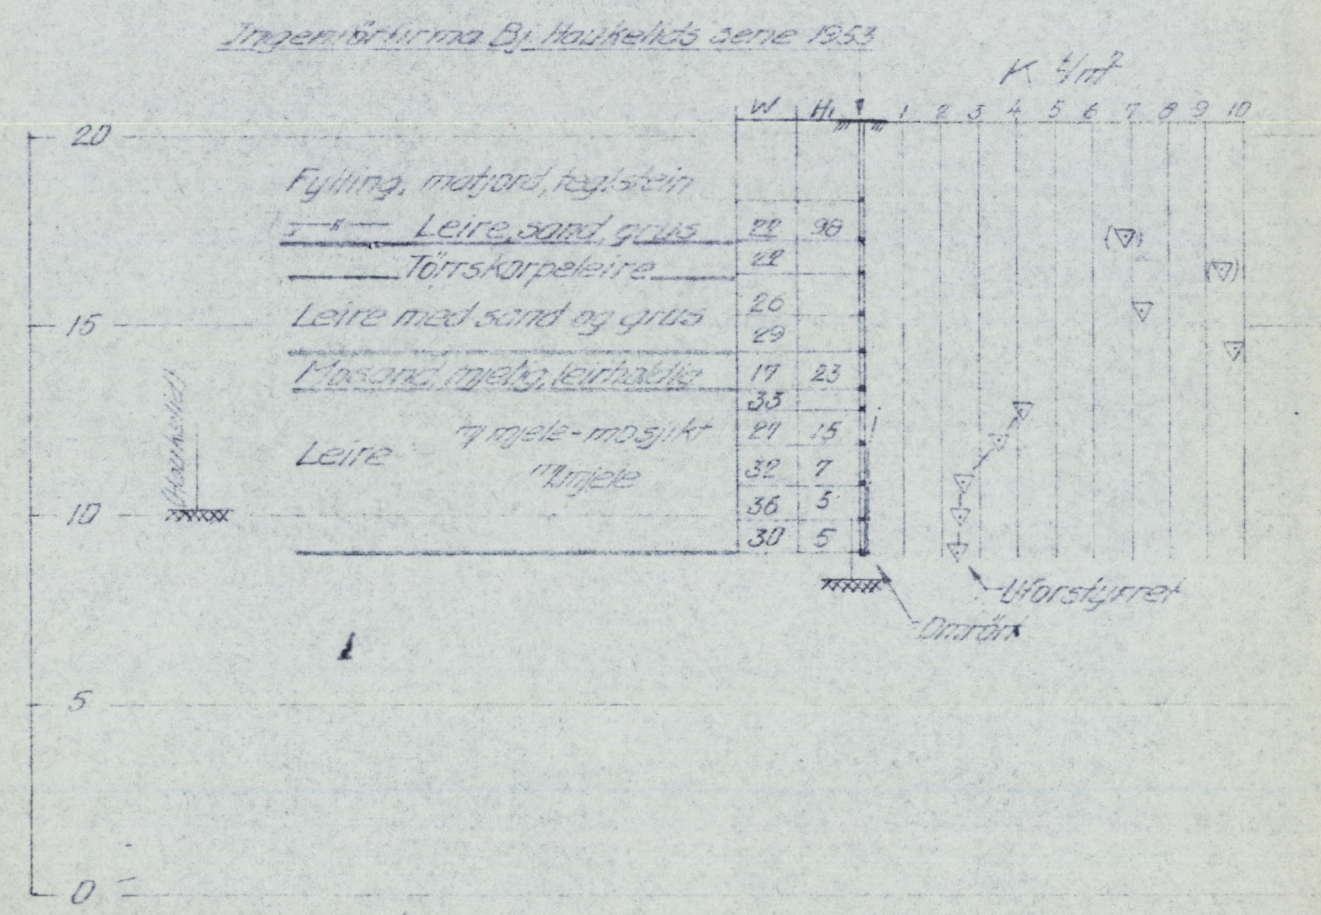 Ingeniörfirma Bj. Haukelids serie 1953
K t/m²
W H₁ 1 2 3 4 5 6 7 8 9 10
20
Fylling, matjord, teglstein
—"— Leire, sand, grus 22 98
Törrskorpeleire 22
15
Leire med sand og grus 26
29
Mosand, mjelig, leirholdig 17 23
33
m/ mjele-mosjikt 27 15
Leire
m/mjele 32 7
(Haukelid)
10
36 5
30 5
Uforstyrret
Omrört
5
0